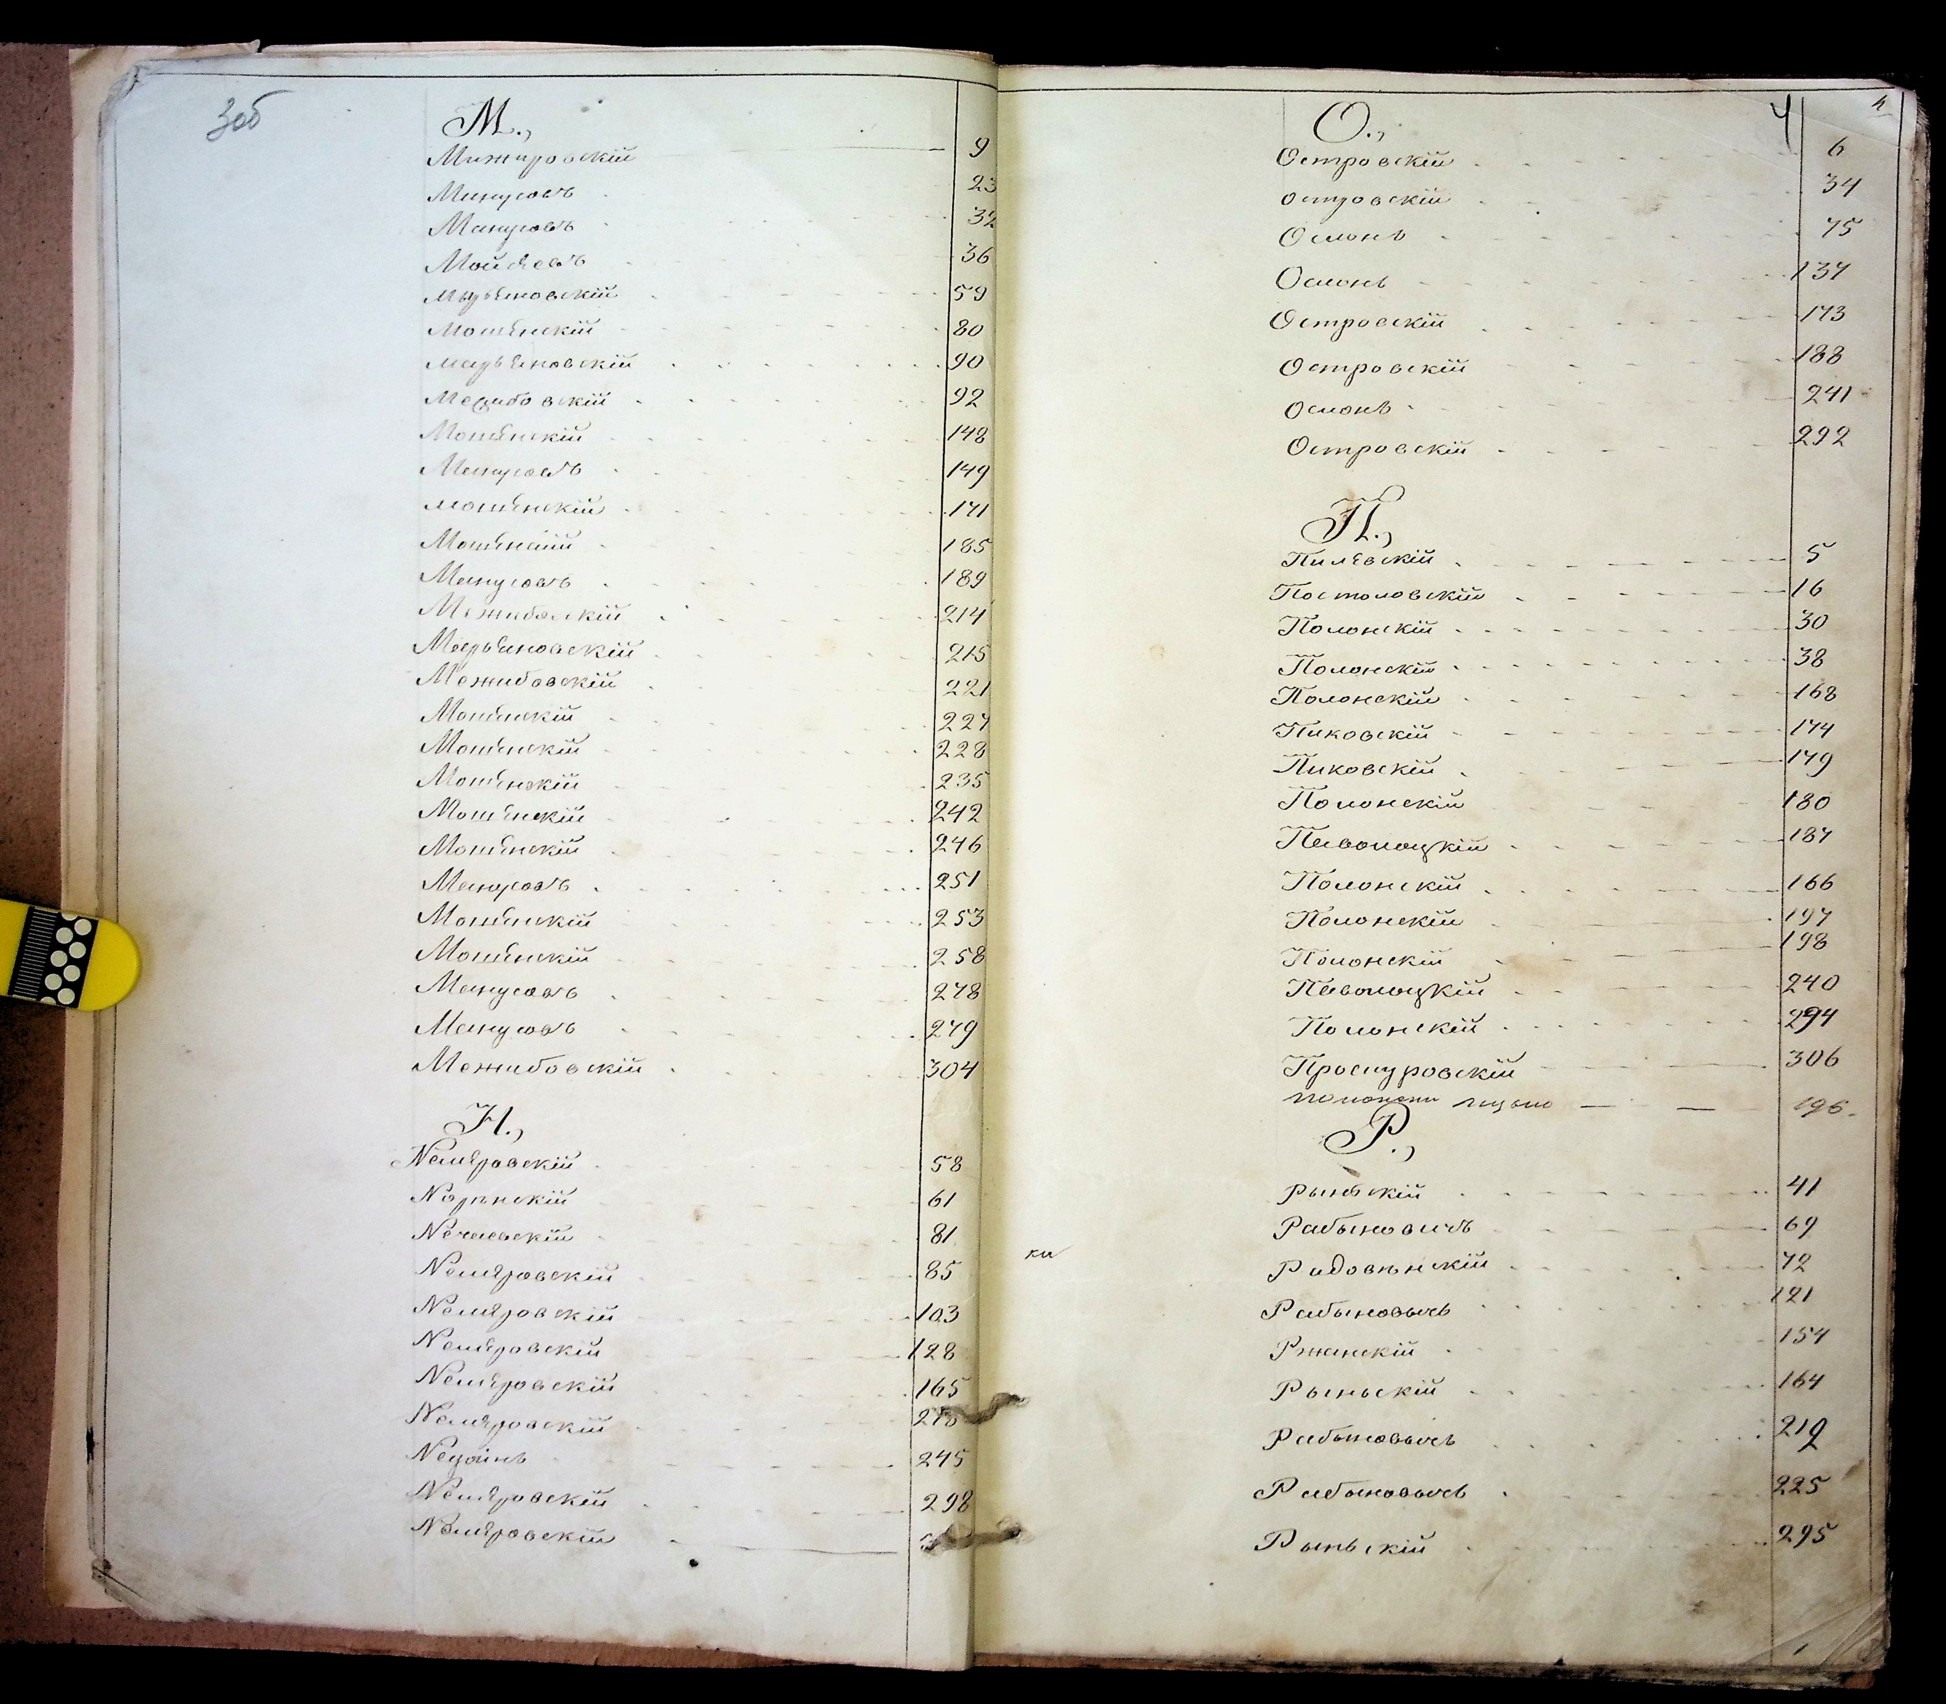 3об
М.,
Мижировскій 9
Манусовъ 23
Манусовъ 32
Мойсеевъ 36
Марьяновскій 59
Мошенскій 80
Марьяновскій 90
Межибовскій 92
Мошенскій 148
Манусовъ 149
Мошенскій 171
Мошенскій 185
Манусовъ 189
Межибовскій 214
Марьяновскій 215
Межибовскій 221
Мошенскій 227
Мошенскій 228
Мошенскій 235
Мошенскій 242
Мошенскій 246
Манусовъ 251
Мошенскій 253
Мошенскій 258
Манусовъ 278
Манусовъ 279
Межибовскій 304
Н.,
Немѣровскій 58
Норинскій 61
Нечаевскій 81
Немѣровскій 85
Немѣровскій 103
Немѣровскій 128
Немѣровскій 165
Немѣровскій
245
Немѣровскій 298
Немѣровскій
4
О.,
Островскій 6
Островскій 34
Ослонъ 75
Ослонъ 137
Островскій 173
Островскій 188
Ослонъ 241
Островскій 292
П.,
Пилявскій 5
Постоловскій 16
Полонскій 30
Полонскій 38
Полонскій 168
Пиковскій 174
Пиковскій 179
Полонскій 180
Паволоцкій 187
Полонскій 166
Полонскій 197
Полонскій 198
Паволоцкій 240
Полонскій 294
Проскуровскій 306
196.
Р.,
Рынскій 41
Рабыновичъ 69
Радовинскій 72
Рабыновычъ 121
Ржанскій 154
Рыньскій 164
Рабыновычъ 212
Рабыновычъ 225
Рыньскій 295
ки